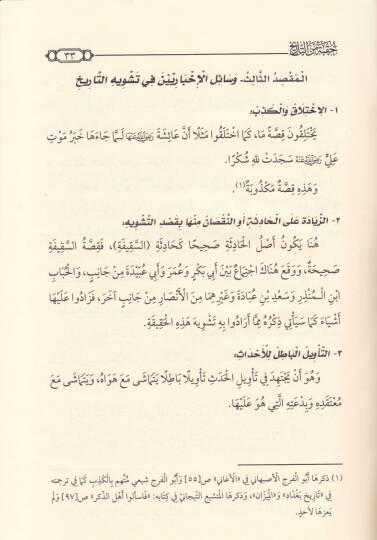 حقبة من التاريخ
٣٣
الْمَقْصِدُ الثَّالِثُ- وَسَائِلُ الْإِخْبَارِيِّيْنَ فِي تَشْوِيهِ التَّارِيخِ
١- الِاخْتِلَاقُ وَالْكَذِبُ:
يَخْتَلِقُونَ قِصَّةً مَا، كَمَا اخْتَلَقُوا مَثَلًا أَنَّ عَائِشَةَ رضي الله عنها لَـمَّا جَاءَهَا خَبَرُ مَوْتِ
عَلِيٍّ رضي الله عنه سَجَدَتْ لِلهِ شُكْرًا.
وَهَذِهِ قِصَّةٌ مَكْذُوبَةٌ(١).
٢- الزِّيَادَةُ عَلَى الْحَادِثَةِ أَوِ النُّقْصَانُ مِنْهَا بِقَصْدِ التَّشْوِيهِ:
هُنَا يَكُونُ أَصْلُ الْحَادِثَةِ صَحِيحًا كَحَادِثَةِ (السَّقِيفَةِ)، فَقِصَّةُ السَّقِيفَةِ
صَحِيحَةٌ، وَوَقَعَ هُنَاكَ اجْتِمَاعٌ بَيْنَ أَبِي بَكْرٍ وَعُمَرَ وَأَبِي عُبَيْدَةَ مِنْ جَانِبٍ، وَالْحُبَابِ
ابْنِ الْـمُنْذِرِ وَسَعْدِ بْنِ عُبَادَةَ وَغَيْرِهِمَا مِنَ الْأَنْصَارِ مِنْ جَانِبٍ آخَرَ، فَزَادُوا عَلَيْهَا
أَشْيَاءَ كَمَا سَيَأْتِي ذِكْرُهُ مِمَّا أَرَادُوا بِهِ تَشْوِيهَ هَذِهِ الْحَقِيقَةِ.
٣- التَّأْوِيلُ الْبَاطِلُ لِلْأَحْدَاثِ:
وَهُوَ أَنْ يَجْتَهِدَ فِي تَأْوِيلِ الْحَدَثِ تَأْوِيلًا بَاطِلًا يَتَمَاشَى مَعَ هَوَاهُ، وَيَتَمَاشَى مَعَ
مُعْتَقَدِهِ وَبِدْعَتِهِ الَّتِي هُوَ عَلَيْهَا.
(١) ذكرها أَبُو الفرج الأصبهاني في «الأغاني» ص[٥٥] وَأَبُو الفرج شيعي مُتَّهم بِالْكَذِب كَمَا فِي ترجمته
فِي «تَارِيخ بَغْدَاد» وَ«الْمِيزَان»، وذكرها المتشيع التيجاني فِي كِتَابه: «فاسألوا أهل الذكر» ص[٩٧] وَلَم
يَعزها لأحدٍ.